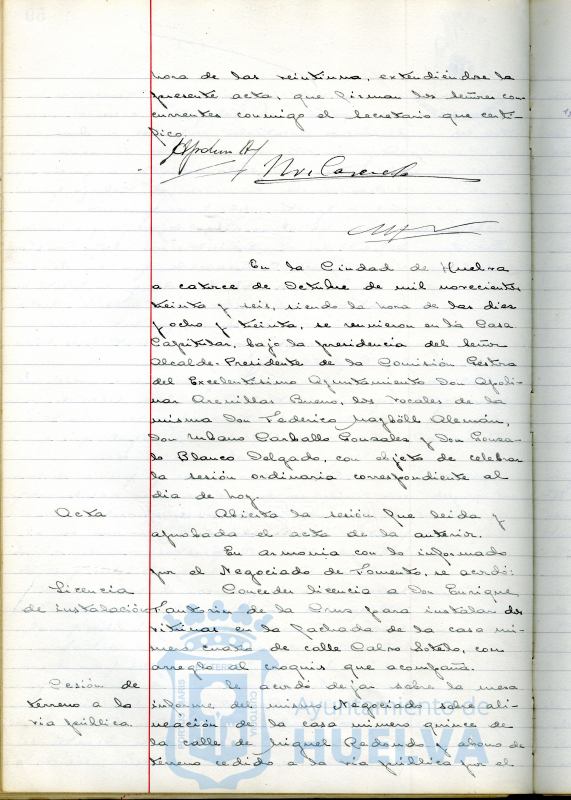 hora de las veintiuna, extendiéndose la
presente acta, que firman los señores con
currentes conmigo el Secretario que certi-
fico.
En la Ciudad de Huelva
a catorce de Octubre de mil novecientos
treinta y seis, siendo la hora de las diez
y ocho y treinta, se reunieron en la Casa
Capitular, bajo la presidencia del Señor
Alcalde-Presidente de la Comisión Gestora
del Excelentísimo Ayuntamiento Don Apoli-
nar Arenillas Bueno, los vocales de la
misma Don Federico Alemán,
Don Urbano Carballo Gonzales y Don Gonza-
lo Blanco Delgado, con objeto de celebrar
la sesión ordinaria correspondiente al
dia de hoy.
Acta
Abierta la sesión fue leida y
aprobada el acta de la anterior.
En armonia con lo informado
por el Negociado de Fomento, se acordó:
Licencia
de instalación
Conceder licencia a Don Enrique
de la Cruz para instalar dos
vitrinas en la fachada de la casa nú-
mero cuatro de calle Calvo Sotelo, con
arreglo al croquis que acompaña.
Cesión de
terreno a la
via pública.
Se acordó dejar sobre la mesa
informe del mismo Negociado sobre ali-
neación de la casa número quince de
la calle de Miguel Redondo y abono de
terreno cedido a la via pública por el
Ayuntamiento de
HUELVA